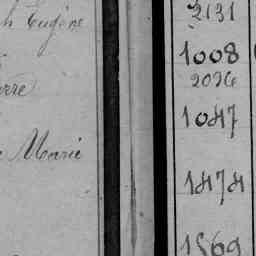 h Eugène
2131
1008
2096
erre
1047
e Marie
1474
1569